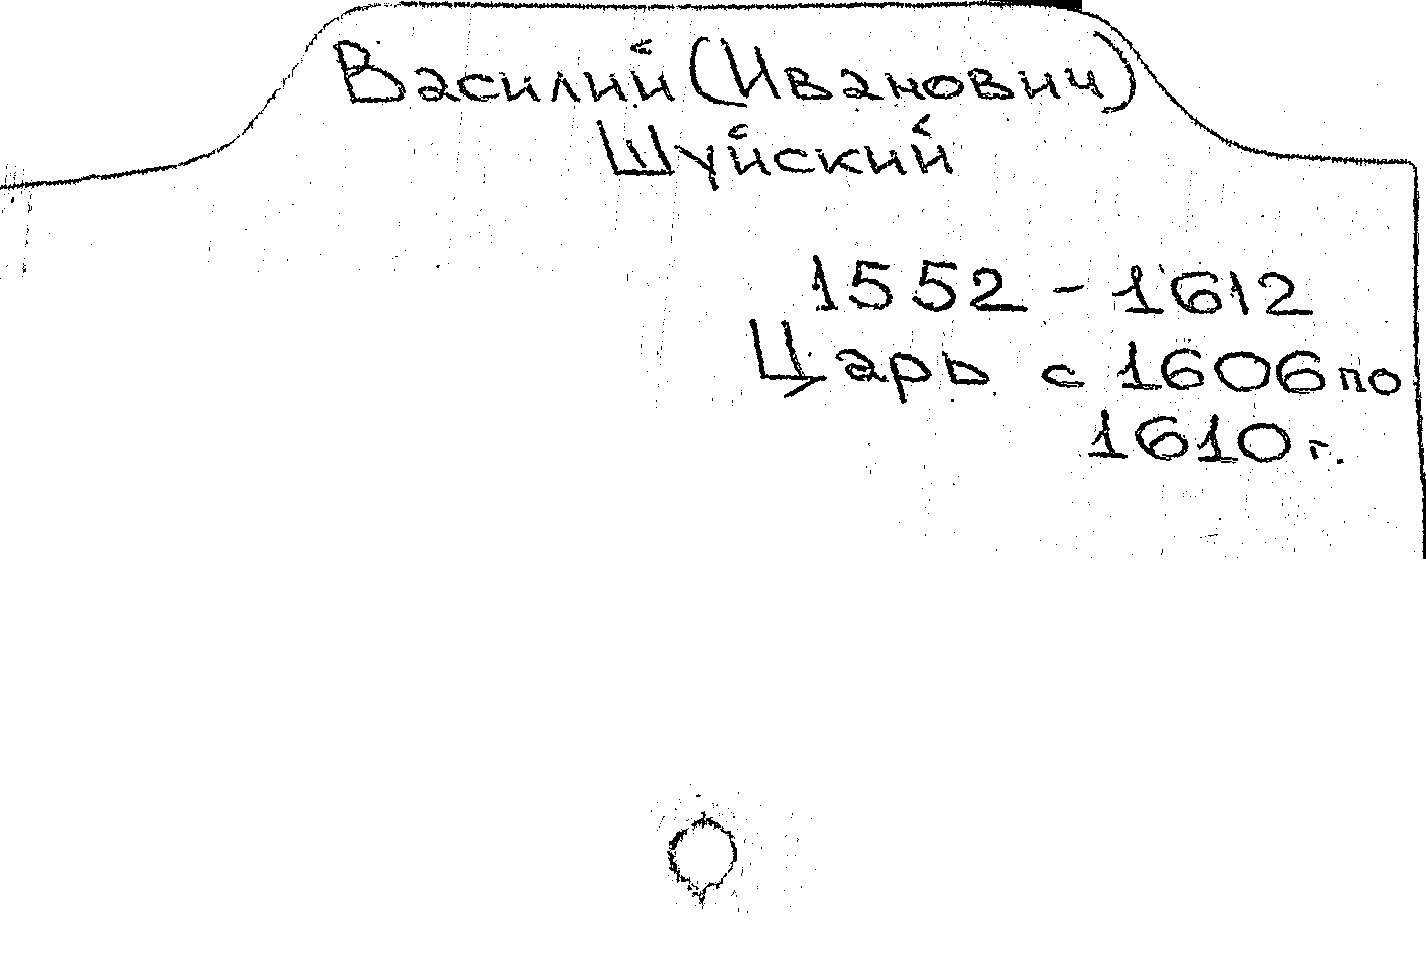 Василий (Иванович)
Шуйский
1552 - 1612
Царь с 1606 по
1610 г.